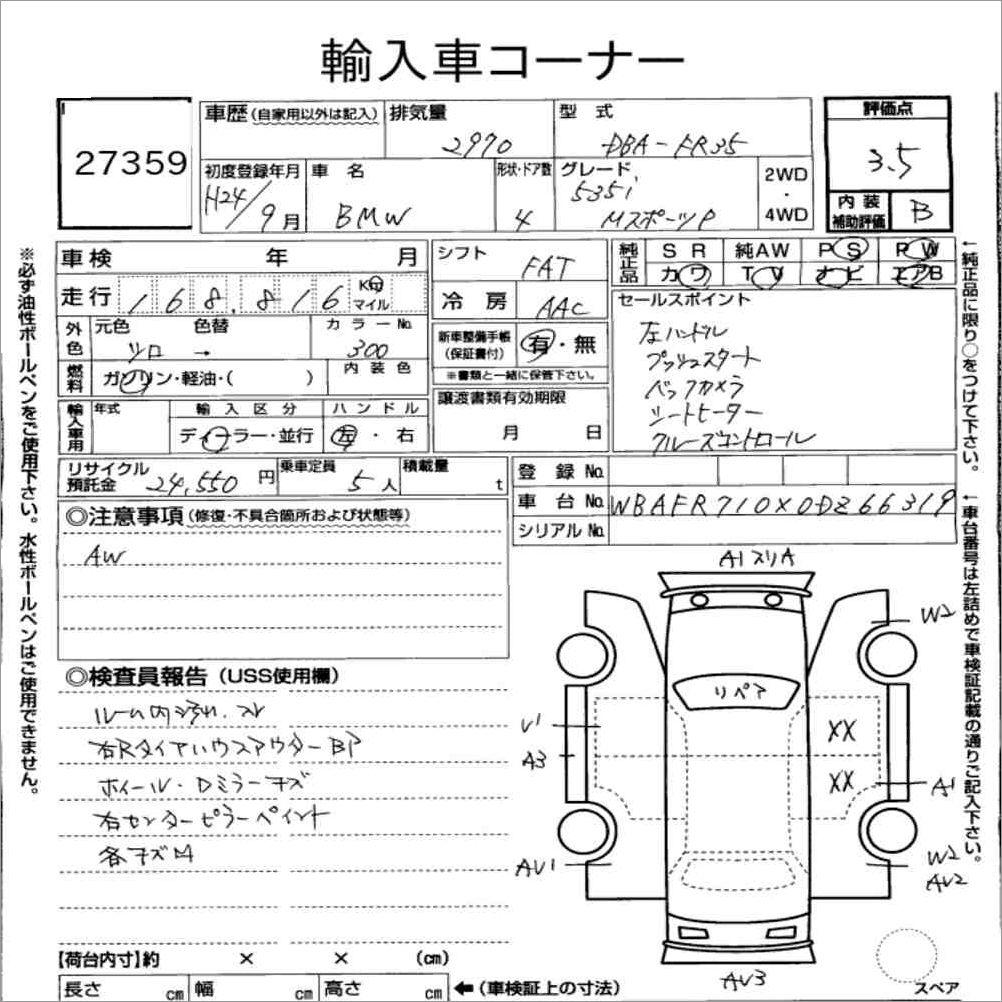 輸入車コーナー
27359
車歴(自家用以外は記入)
排気量
2970
型式
DBA-FR35
評価点
3.5
初度登録年月
H24/9月
車名
BMW
形状・ドア数
4
グレード
535i
MスポーツP
2WD
・
4WD
内装
補助評価
B
車検 年 月
走行 168,816 Km マイル
外色
元色 色替
シロ →
カラーNo.
300
燃料
ガソリン・軽油・( )
内装色
輸入車用
年式
輸入区分
ディーラー・並行
ハンドル
左・右
シフト
FAT
冷房
AAC
新車整備手帳
(保証書付)
有・無
※書類と一緒に保管下さい。
譲渡書類有効期限
月 日
純正品
SR 純AW PS PW
カワ TV ナビ エアB
セールスポイント
左ハンドル
プッシュスタート
バックカメラ
シートヒーター
クルーズコントロール
リサイクル
預託金
24,550円
乗車定員
5人
積載量
t
登録No.
車台No.
WBAFR710X0DZ66319
シリアルNo.
◎注意事項(修復・不具合箇所および状態等)
AW
◎検査員報告(USS使用欄)
ルーム内汚れ、スレ
右Rタイヤハウスアウター BP
ホイール・Dミラーキズ
右センターピラーペイント
各キズ凹
【荷台内寸】約 × × (cm)
長さ cm 幅 cm 高さ cm
←(車検証上の寸法)
A1スリA
W2
リペア
U1
A3
XX
XX
A1
AU1
W2
AU2
AU3
スペア
※必ず油性ボールペンをご使用下さい。水性ボールペンはご使用できません。
←純正品に限り○をつけて下さい。
←車台番号は左詰めで車検証記載の通りご記入下さい。